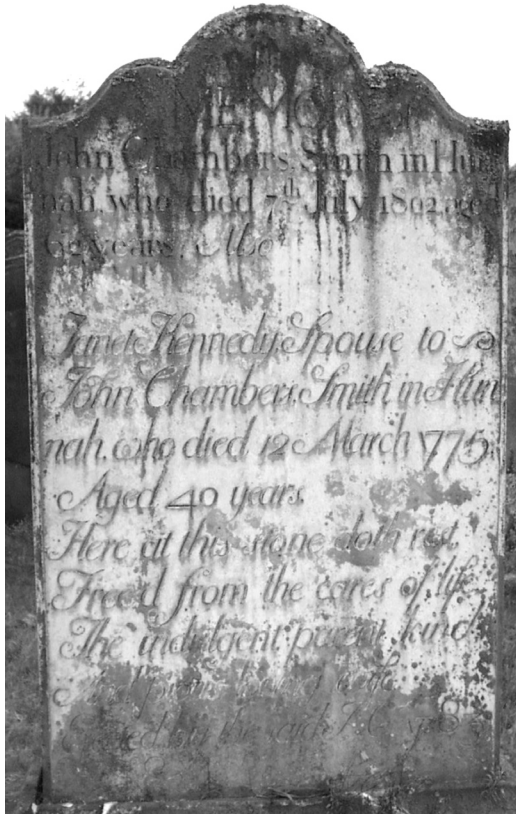 MEMORY of
John Chambers, Smith in Hun
nah, who died 7th July 1802, aged
62 years, Also
Janet Kennedy, Spouse to
John Chambers, Smith in Hun
nah, who died 12 March 1775,
Aged 40 years.
Here at this stone doth rest,
Free'd from the cares of life,
The indulgent parent kind
And wife
by the said J. C.